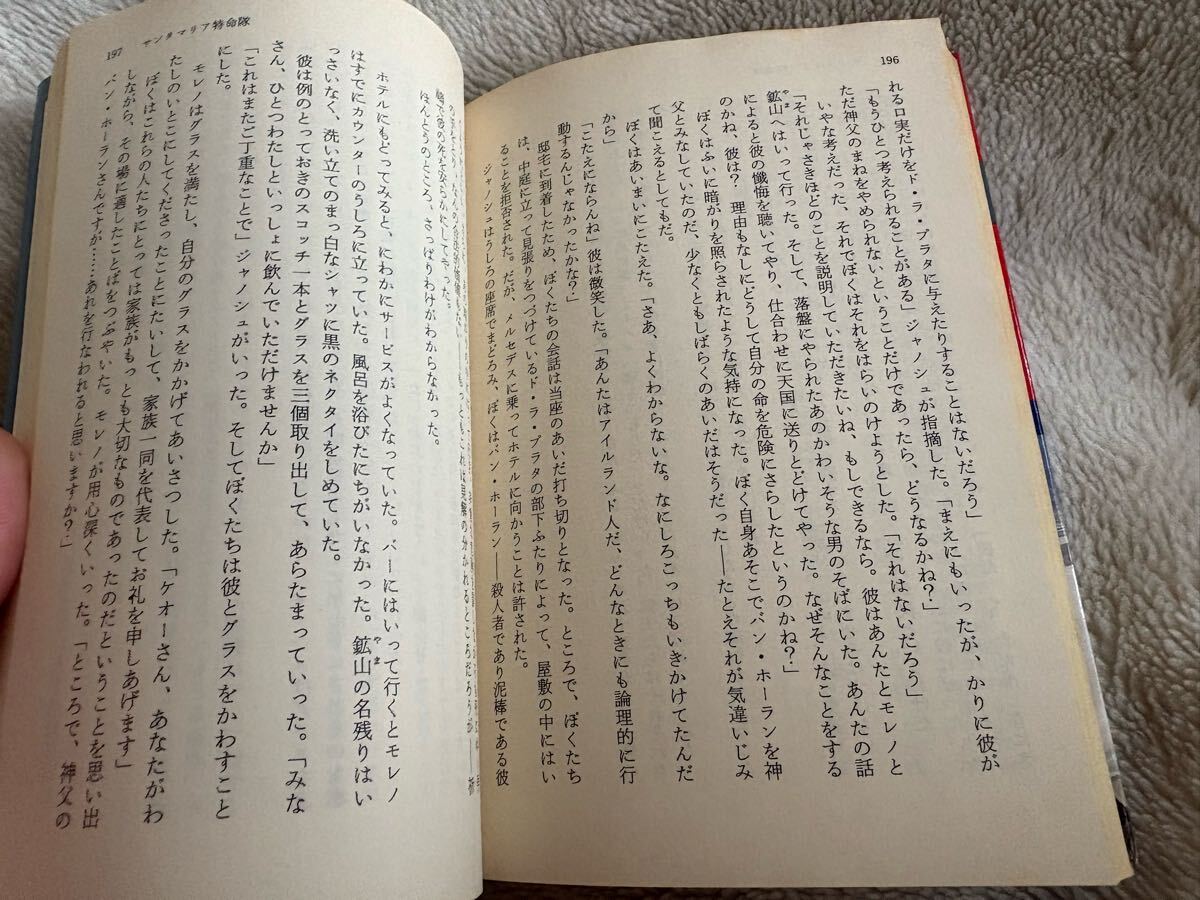 196
れる口実だけをド・ラ・プラタに与えたりすることはないだろう」
「もうひとつ考えられることがある」ジャノシュが指摘した。「まえにもいったが、かりに彼が
ただ神父のまねをやめられないということだけであったら、どうなるかね?」
いやな考えだった、それでぼくはそれをはらいのけようとした。「それはないだろう」
「それじゃさきほどのことを説明していただきたいね、もしできるなら。彼はあんたとモレノと
鉱山へはいって行った。そして、落盤にやられたあのかわいそうな男のそばにいた。あんたの話
やま
によると彼の懺悔を聴いてやり、仕合わせに天国に送りとどけてやった。なぜそんなことをする
のかね、彼は? 理由もなしにどうして自分の命を危険にさらしたというのかね?」
ぼくはふいに暗がりを照らされたような気持になった。ぼく自身あそこでバン・ホーランを神
父とみなしていたのだ、少なくともしばらくのあいだはそうだった――たとえそれが気違いじみ
て聞こえるとしてもだ。
ぼくはあいまいにこたえた。「さあ、よくわからないな。なにしろこっちもいきかけてたんだ
から」
「こたえにならんね」彼は微笑した。「あんたはアイルランド人だ、どんなときにも論理的に行
動するんじゃなかったかな?」
邸宅に到着したため、ぼくたちの会話は当座のあいだ打ち切りとなった。ところで、ぼくたち
は、中庭に立って見張りをつづけているド・ラ・プラタの部下ふたりによって、屋敷の中にはい
ることを拒否された。だが、メルセデスに乗ってホテルに向かうことは許された。
ジャノシュはうしろの座席でまどろみ、ぼくはバン・ホーラン――殺人者であり泥棒である彼
197 サンタマリア特命隊
ほんとうのところ、さっぱりわけがわからなかった。
ホテルにもどってみると、にわかにサービスがよくなっていた。バーにはいって行くとモレノ
はすでにカウンターのうしろに立っていた。風呂を浴びたにちがいなかった。鉱山の名残りはい
やま
っさいなく、洗い立てのまっ白なシャツに黒のネクタイをしめていた。
彼は例のとっておきのスコッチ一本とグラスを三個取り出して、あらたまっていった。「みな
さん、ひとつわたしといっしょに飲んでいただけませんか」
「これはまたご丁重なことで」ジャノシュがいった。そしてぼくたちは彼とグラスをかわすこと
にした。
モレノはグラスを満たし、自分のグラスをかかげてあいさつした。「ケオーさん、あなたがわ
たしのいとこにしてくださったことにたいして、家族一同を代表してお礼を申しあげます」
ぼくはこれらの人たちにとっては家族がもっとも大切なものであったのだということを思い出
しながら、その場に適したことばをつぶやいた。モレノが用心深くいった。「ところで、神父の
バン・ホーランさんですが……あれを行なわれると思いますか?」